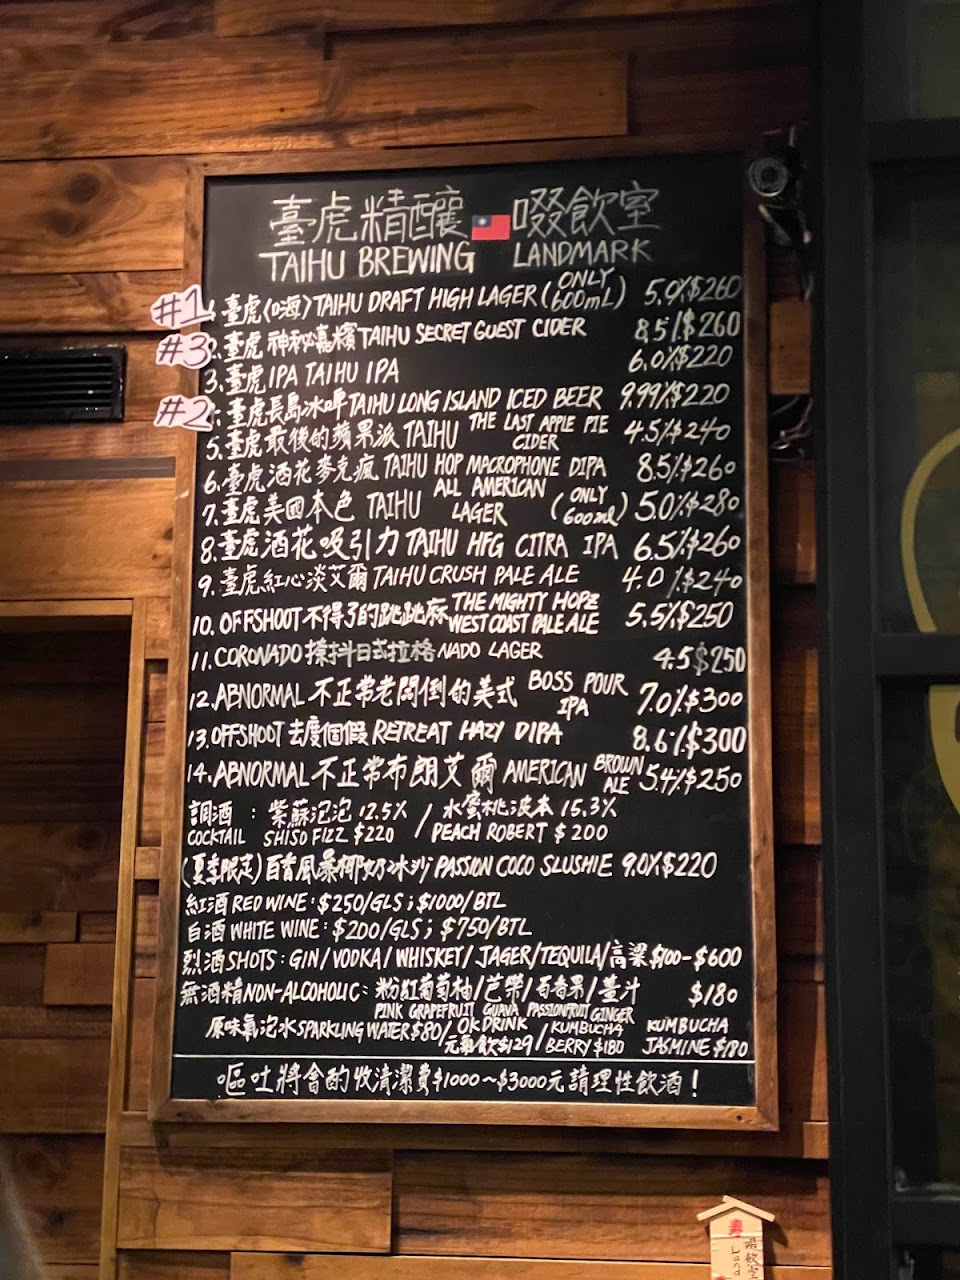 臺虎精釀 啜飲室
TAIHU BREWING LANDMARK
#1 1. 臺虎(嗨) TAIHU DRAFT HIGH LAGER (ONLY 600mL) 5.0% $260
#3 2. 臺虎 神秘嘉檳 TAIHU SECRET GUEST CIDER 8.5% $260
3. 臺虎 IPA TAIHU IPA 6.0% $220
#2 4. 臺虎 長島冰啤 TAIHU LONG ISLAND ICED BEER 9.99% $220
5. 臺虎 最後的蘋果派 TAIHU THE LAST APPLE PIE CIDER 4.5% $240
6. 臺虎 酒花麥克瘋 TAIHU HOP MACROPHONE DIPA 8.5% $260
7. 臺虎 美國本色 TAIHU ALL AMERICAN LAGER (ONLY 600ml) 5.0% $280
8. 臺虎 酒花吸引力 TAIHU HFG CITRA IPA 6.5% $260
9. 臺虎 紅心淡艾爾 TAIHU CRUSH PALE ALE 4.0% $240
10. OFFSHOOT 不得了的跳跳麻 THE MIGHTY HOPZ WEST COAST PALE ALE 5.5% $250
11. CORONADO 抖日式拉格 NADO LAGER 4.5 $250
12. ABNORMAL 不正常老闆倒的美式 BOSS POUR IPA 7.0% $300
13. OFFSHOOT 去度個假 RETREAT HAZY DIPA 8.6% $300
14. ABNORMAL 不正常布朗艾爾 AMERICAN BROWN ALE 5.4% $250
調酒 : 紫蘇泡泡 12.5% / 水蜜桃波本 15.3%
COCKTAIL SHISO FIZZ $220 / PEACH ROBERT $200
(夏季限定) 百香風暴椰奶冰沙 PASSION COCO SLUSHIE 9.0% $220
紅酒 RED WINE: $250/GLS; $1000/BTL
白酒 WHITE WINE: $200/GLS; $750/BTL
烈酒 SHOTS: GIN/VODKA/WHISKEY/JAGER/TEQUILA/高粱 $100-$600
無酒精 NON-ALCOHOLIC: 粉紅葡萄柚/芭樂/百香果/薑汁 $180
PINK GRAPEFRUIT GUAVA PASSIONFRUIT GINGER
原味氣泡水 SPARKLING WATER $80/ OK DRINK 元氣飲 $129 / KUMBUCHA BERRY $180 KUMBUCHA JASMINE $180
嘔吐將會酌收清潔費$1000~$3000元請理性飲酒!
啜飲室
Land